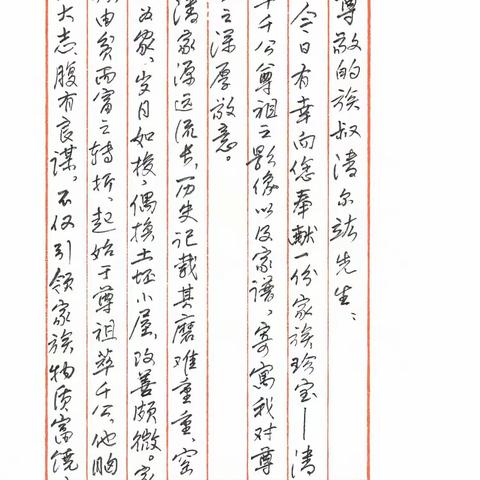 尊敬的族叔清尔竑先生：
今日有幸向您奉献一份家族珍宝—清
千公尊祖之影像以及家谱，寄寓我对尊
之深厚敬意。
清家源远流长，历史记载其磨难重重，窑
为家，岁月如梭，偶换土坯小屋，改善颇微。家
由贫而富之转折，起始于尊祖萃千公，他胸
大志，腹有良谋。不仅引领家族物质富饶，